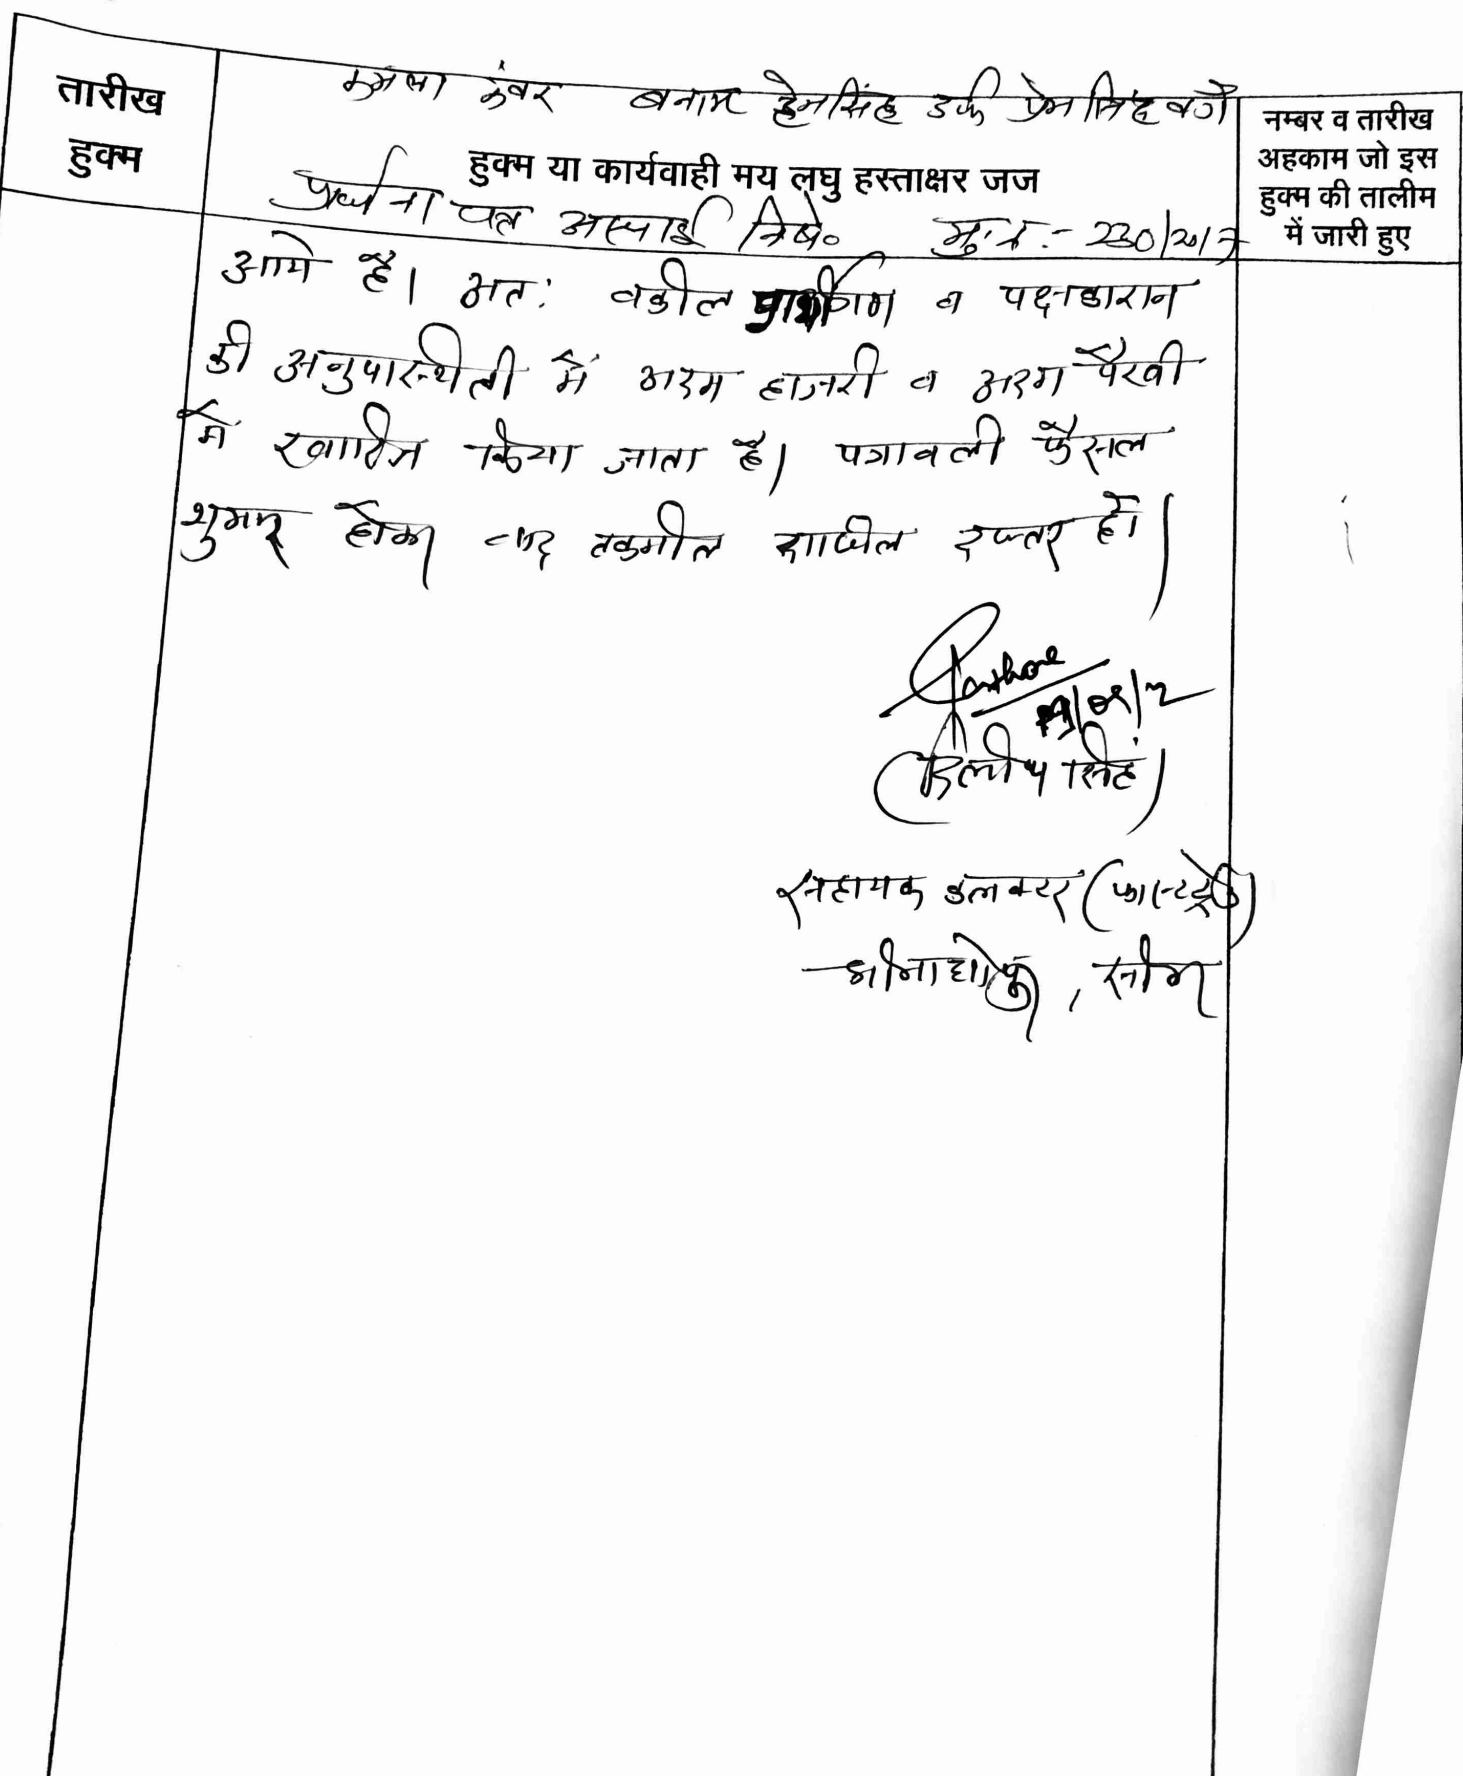 तारीख
हुक्म
कंवर बनाम हेमसिंह उर्फ प्रेमसिंह वगै
हुक्म या कार्यवाही मय लघु हस्ताक्षर जज
प्रार्थना पत्र अस्थाई निषे० मु.न.:- 230/2017
नम्बर व तारीख
अहकाम जो इस
हुक्म की तालीम
में जारी हुए
आये है। अत: वकील प्रार्थीगण व पक्षकारान
की अनुपस्थिती में अदम हाजरी व अदम पैरवी
में खारिज किया जाता है। पत्रावली फैसल
शुमार होकर बाद तकमील दाखिल दफ्तर हो।
(दिलीप सिंह)
सहायक कलक्टर (फास्टट्रेक)
श्रीमाधोपुर, सीकर